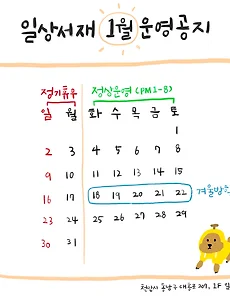 일상서재 1월 운영공지
정기휴무 정상운영 (PM 1-8)
일 월 화 수 목 금 토
1
2 3 4 5 6 7 8
9 10 11 12 13 14 15
16 17 18 19 20 21 22 겨울방학
23 24 25 26 27 28 29
30 31